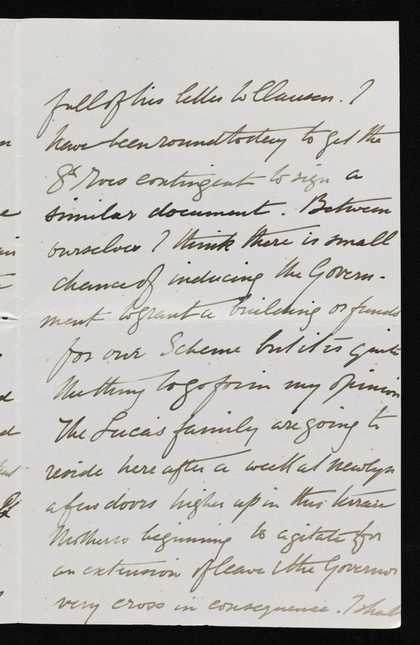 full of his letter to Clausen. I
have been round today to get the
St Ives contingent to sign a
similar document. Between
ourselves I think there is small
chance of inducing the Govern-
ment to grant a building or funds
for our Scheme but it is quite
the thing to go for in my opinion
The Lucas family are going to
reside here after a week at Newlyn
a few doors higher up in this terrace
Mother is beginning to agitate for
an extension of leave & the Governor
very cross in consequence. I shall